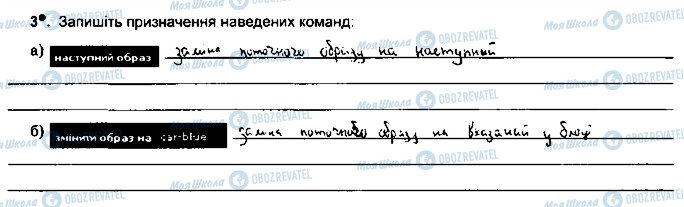 3•. Запишіть призначення наведених команд:
а) наступний образ заміна поточного образу на наступний
б) змінити образ на car-blue заміна поточного образу на вказаний у блоці
МояШкола OBOZREVATEL